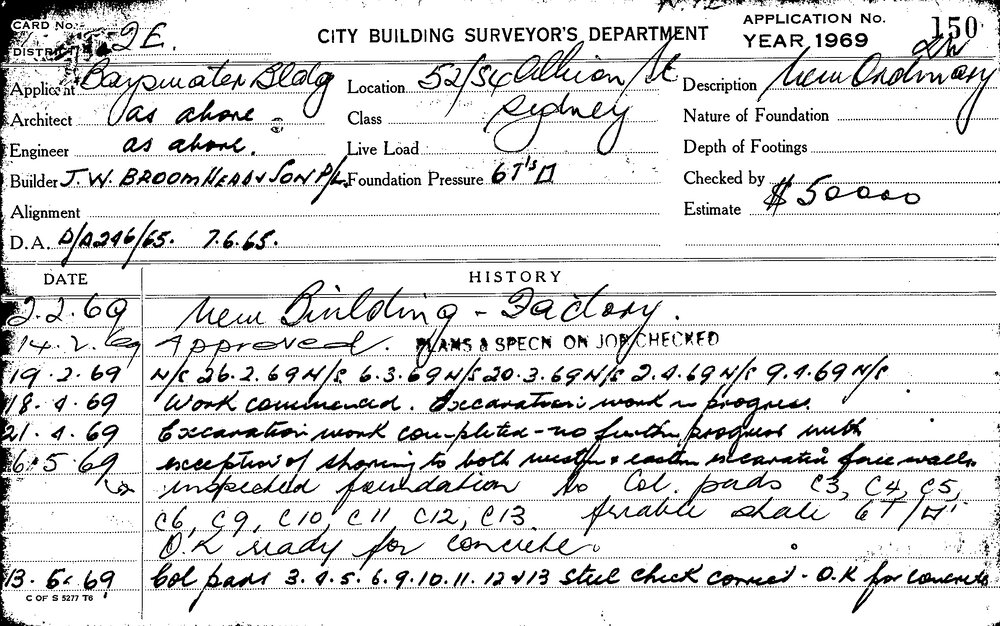 CARD No.
DISTRICT 2E.
CITY BUILDING SURVEYOR'S DEPARTMENT
APPLICATION No. 150
YEAR 1969
Applicant Bayswater Bldg
Location 52/54 Albion St
Sydney
Description New Ordinary
Architect as above
Class
Nature of Foundation
Engineer as above.
Live Load
Depth of Footings
Builder J. W. BROOMHEAD & SON P/L
Foundation Pressure 6T's □
Checked by
Alignment
Estimate $50000
D.A. D/A246/65. 7.6.65.
DATE HISTORY
2.2.69 New Building - Factory.
14.2.69 Approved. PLANS & SPECN ON JOB CHECKED
19.2.69 N/S 26.2.69 N/S 6.3.69 N/S 20.3.69 N/S 2.4.69 N/S 9.4.69 N/S
18.4.69 Work commenced. Excavation work in progress.
21.4.69 Excavation work completed - no further progress with
6.5.69 exception of shoring to both western & eastern excavation face walls
inspected foundation to Col. pads C3, C4, C5,
C6, C9, C10, C11, C12, C13 friable shale 6T/□'
O.K ready for concrete.
13.5.69 Col pads 3.4.5.6.9.10.11.12 & 13 Steel check correct - O.K for concrete
C OF S 5277 T6